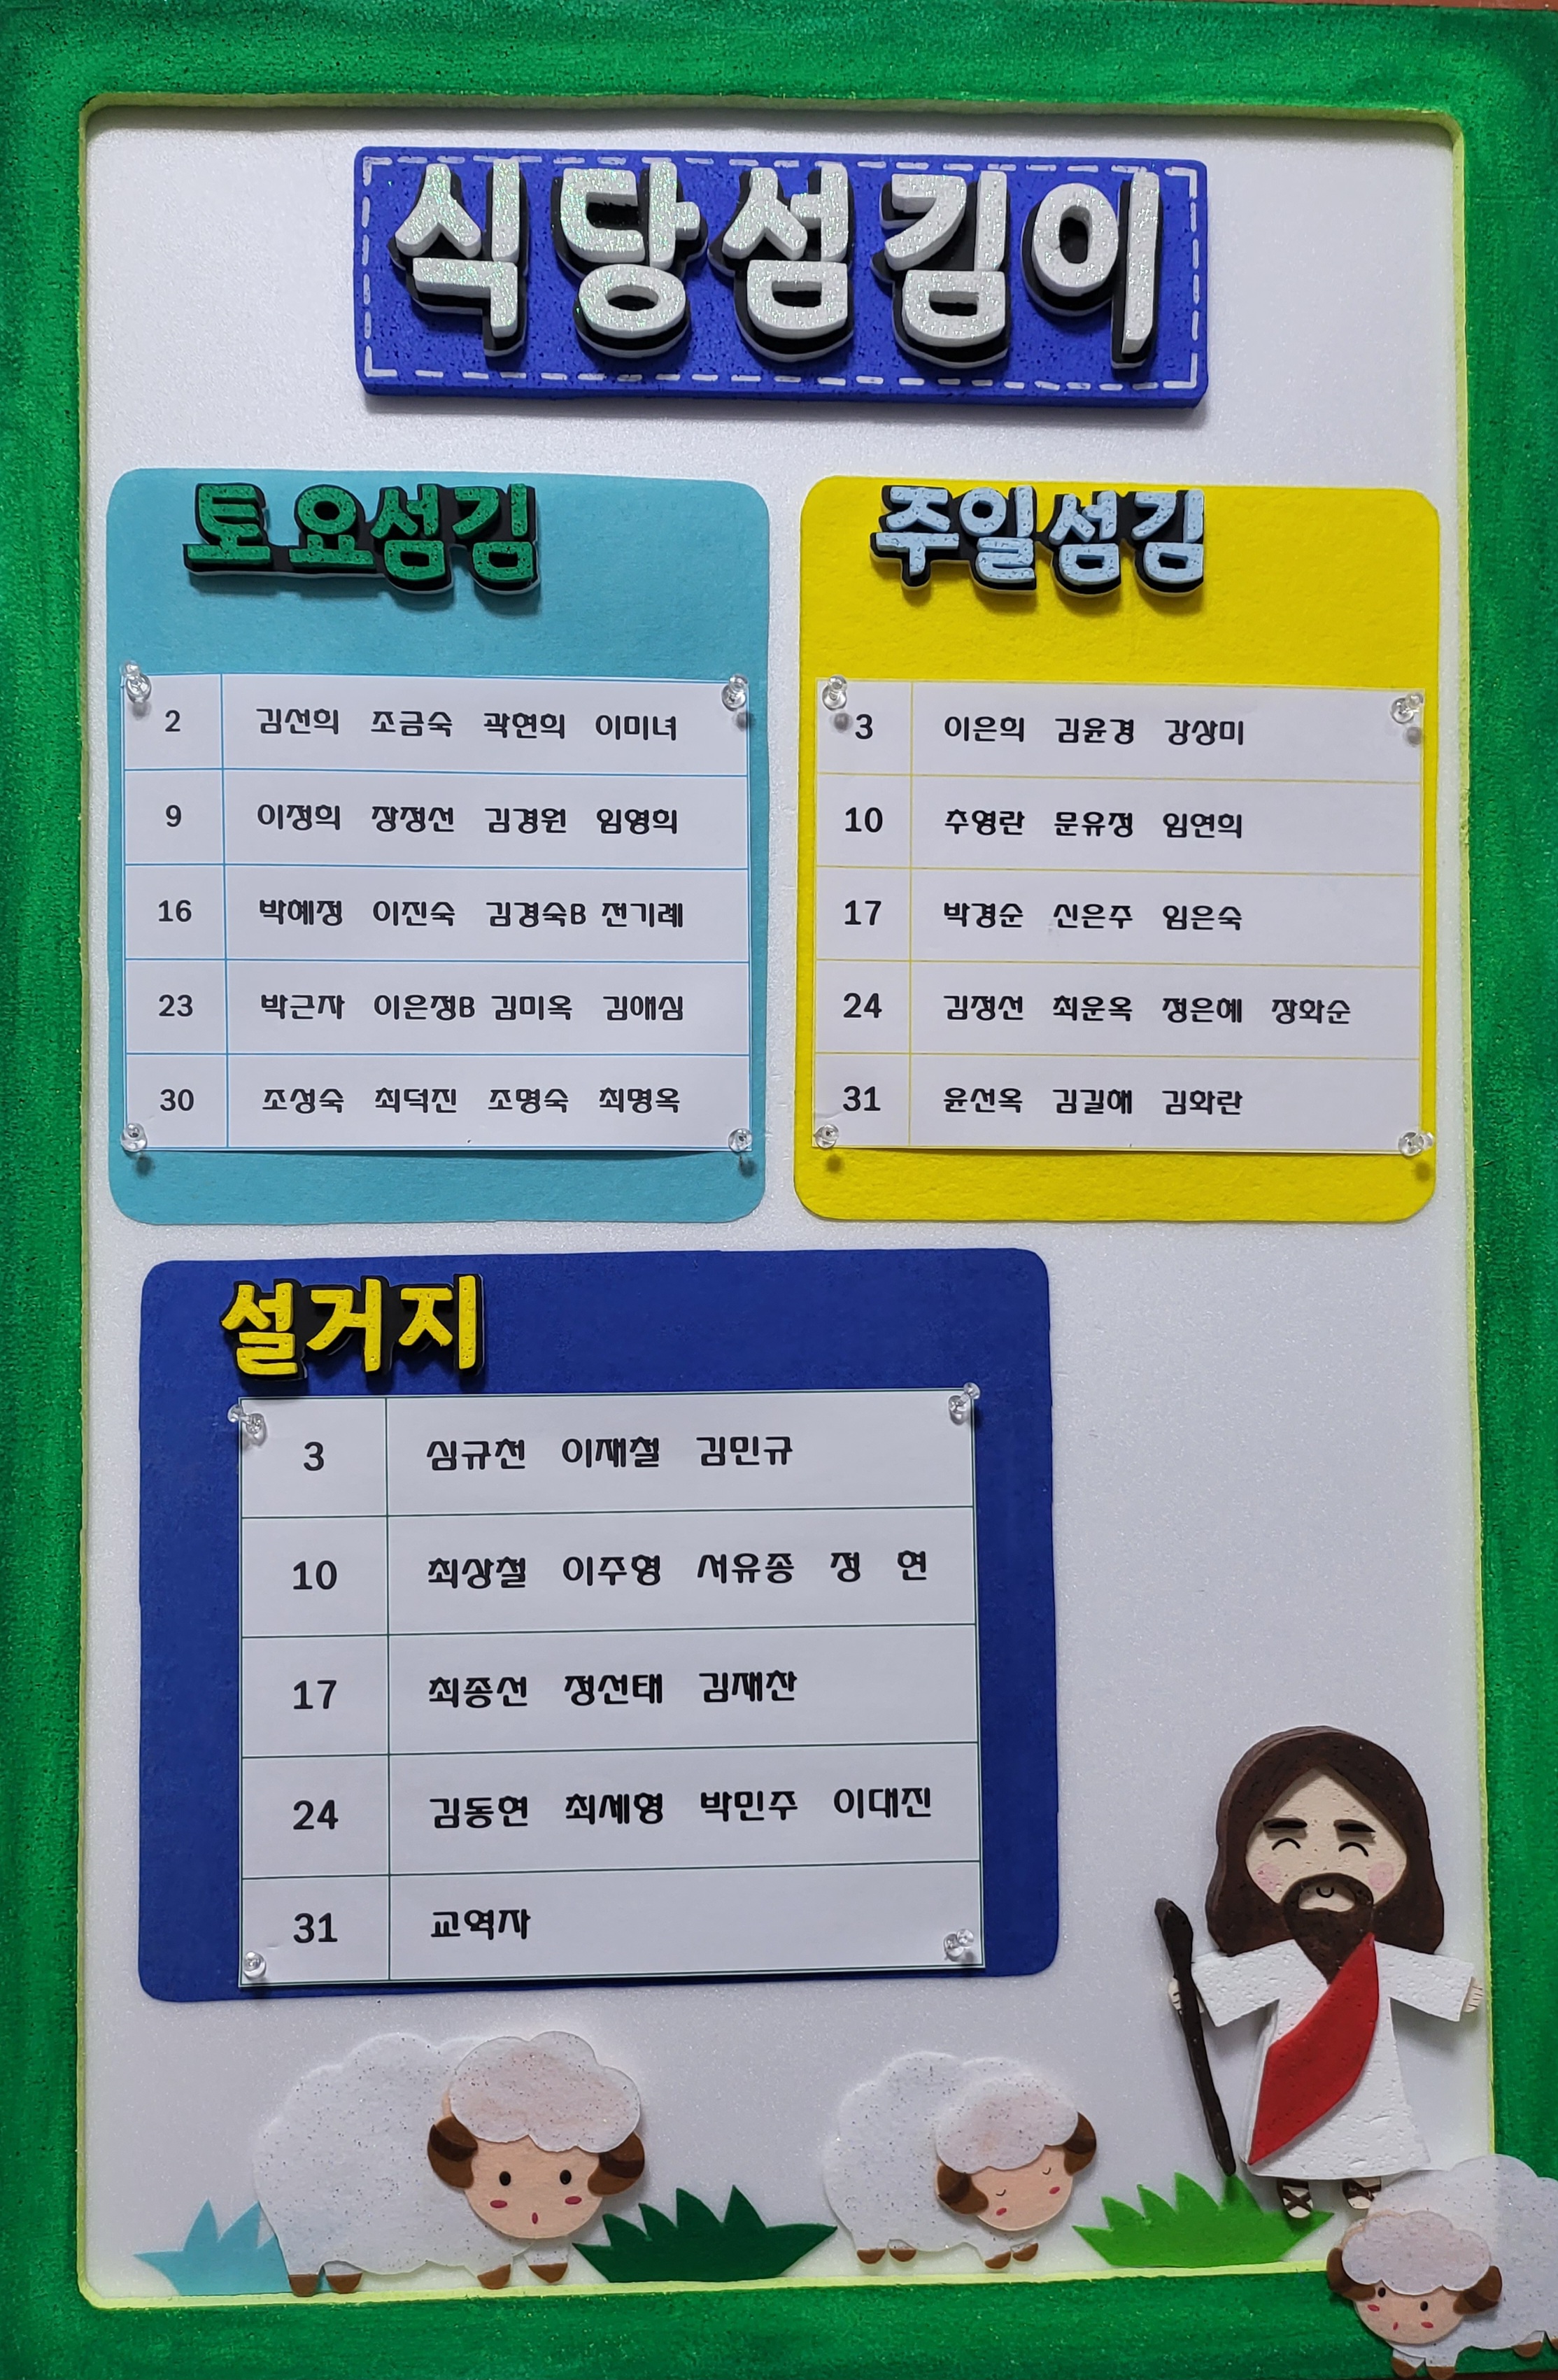 식당섬김이
토요섬김
2 김선희 조금숙 곽현희 이미녀
9 이정희 장정선 김경원 임영희
16 박혜정 이진숙 김경숙B 전기례
23 박근자 이은정B 김미옥 김애심
30 조성숙 최덕진 조명숙 최명옥
주일섬김
3 이은희 김윤경 강상미
10 추영란 문유정 임연희
17 박경순 신은주 임은숙
24 김정선 최운옥 정은혜 장화순
31 윤선옥 김길해 김화란
설거지
3 심규천 이재철 김민규
10 최상철 이주형 서유종 정 현
17 최종선 정선태 김재찬
24 김동현 최세영 박민주 이대진
31 교역자